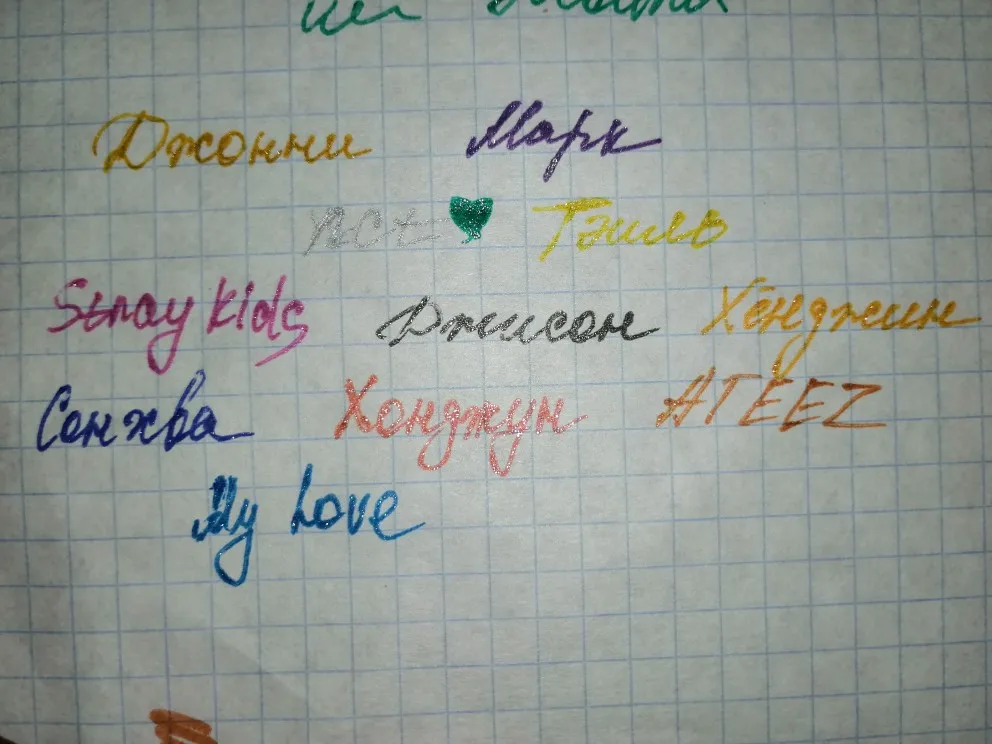 Джонни Марк
nct Тэиль
Stray kids Джисон Хёнджин
Сонхва Хонджун ATEEZ
My Love